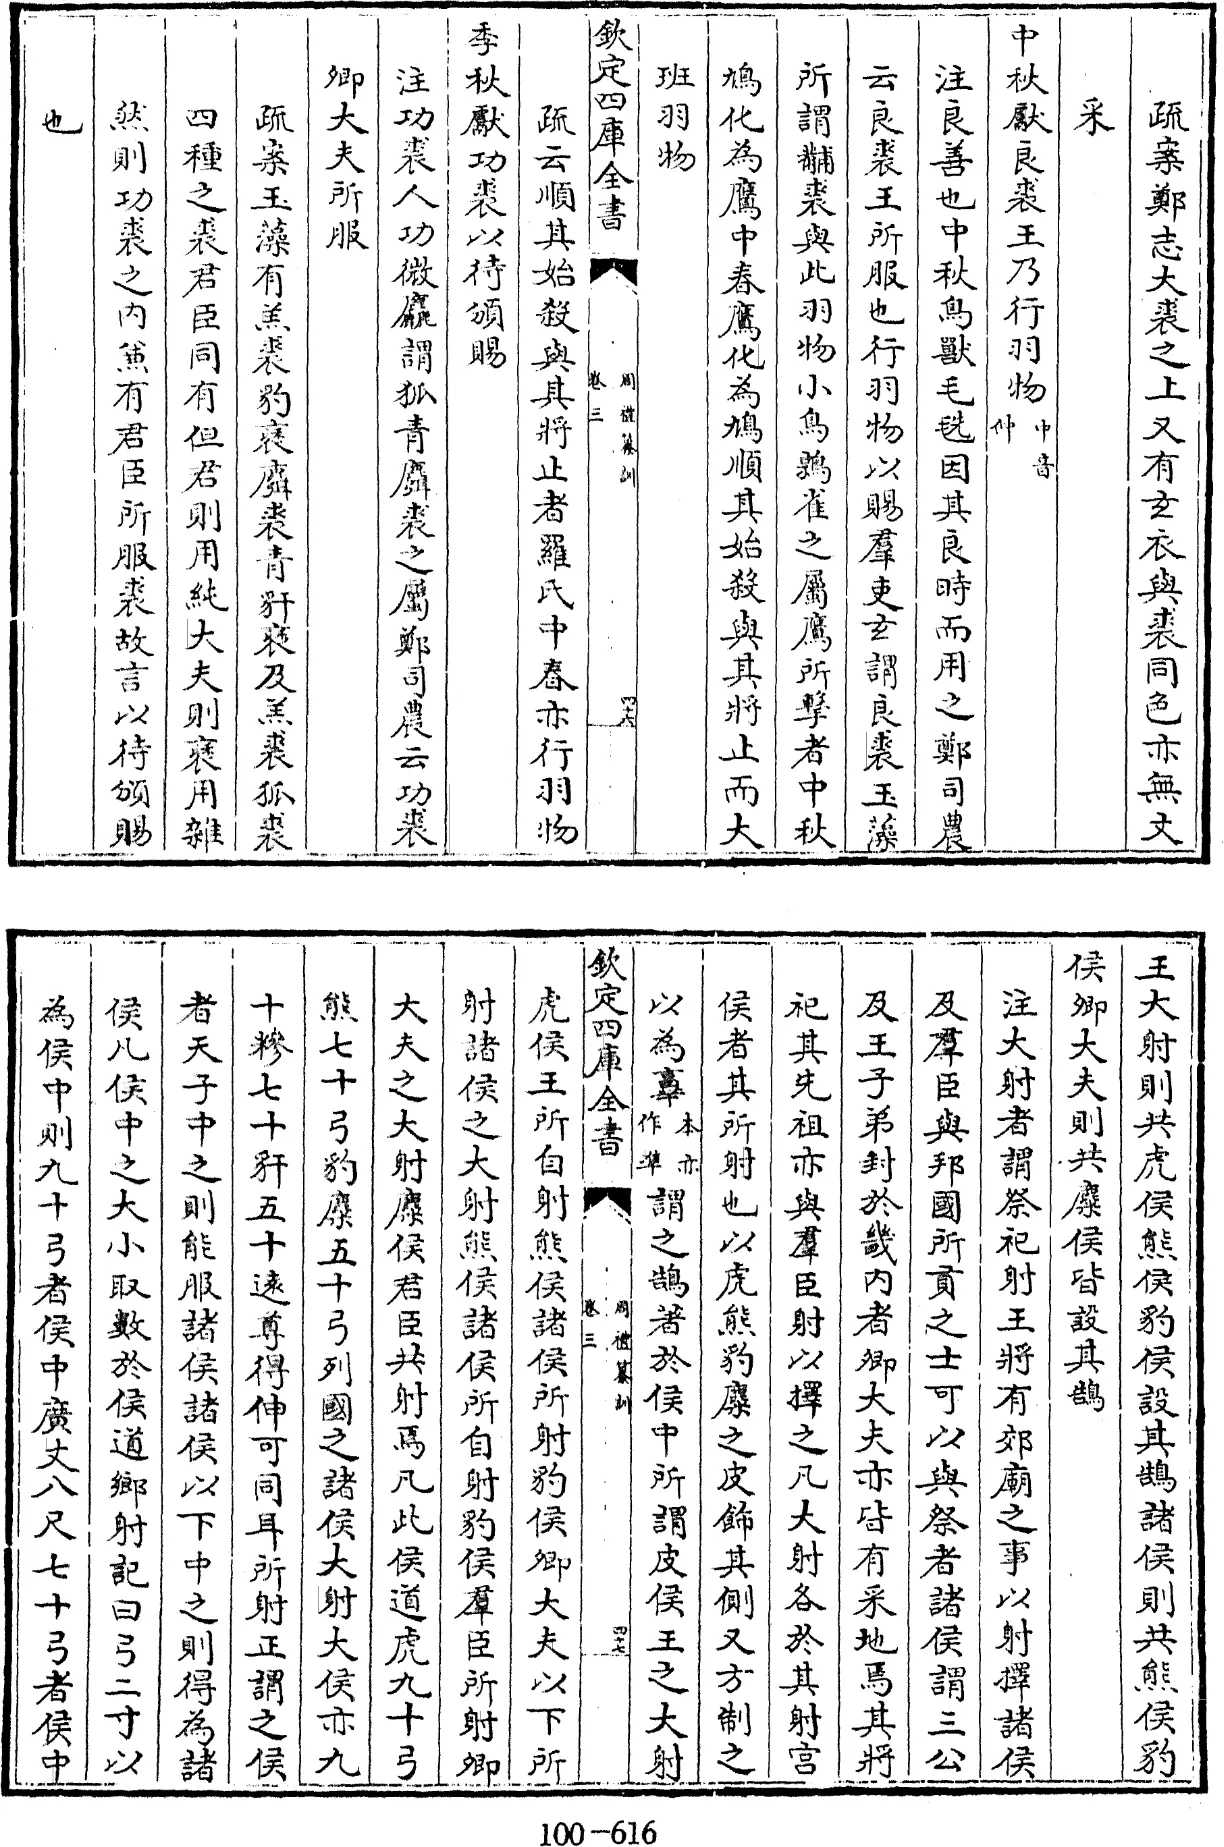 疏案鄭志大裘之上又有玄衣與裘同色亦無文
采
中秋獻良裘王乃行羽物中音仲
注良善也中秋鳥獸毛毨因其良時而用之鄭司農
云良裘王所服也行羽物以賜羣吏玄謂良裘玉藻
所謂黼裘與此羽物小鳥鶉雀之屬鷹所擊者中秋
鳩化為鷹中春鷹化為鳩順其始殺與其將止而大
班羽物
欽定四庫全書
周禮纂訓
卷三
四十六
疏云順其始殺與其將止者羅氏中春亦行羽物
季秋獻功裘以待頒賜
注功裘人功微麤謂狐青麛裘之屬鄭司農云功裘
卿大夫所服
疏案玉藻有羔裘豹褎麛裘青豻褎及羔裘狐裘
四種之裘君臣同有但君則用純大夫則褎用雜
然則功裘之內兼有君臣所服裘故言以待頒賜
也
王大射則共虎侯熊侯豹侯設其鵠諸侯則共熊侯豹
侯卿大夫則共麋侯皆設其鵠
注大射者謂祭祀射王將有郊廟之事以射擇諸侯
及羣臣與邦國所貢之士可以與祭者諸侯謂三公
及王子弟封於畿內者卿大夫亦皆有采地焉其將
祀其先祖亦與羣臣射以擇之凡大射各於其射宮
侯者其所射也以虎熊豹麋之皮飾其側又方制之
以為𦎧本亦作準謂之鵠著於侯中所謂皮侯王之大射
欽定四庫全書
周禮纂訓
卷三
四十七
虎侯王所自射熊侯諸侯所射豹侯卿大夫以下所
射諸侯之大射熊侯諸侯所自射豹侯羣臣所射卿
大夫之大射麋侯君臣共射焉凡此侯道虎九十弓
熊七十弓豹麋五十弓列國之諸侯大射大侯亦九
十糝七十豻五十遠尊得伸可同耳所射正謂之侯
者天子中之則能服諸侯諸侯以下中之則得為諸
侯凡侯中之大小取數於侯道鄉射記曰弓二寸以
為侯中則九十弓者侯中廣丈八尺七十弓者侯中
100-616